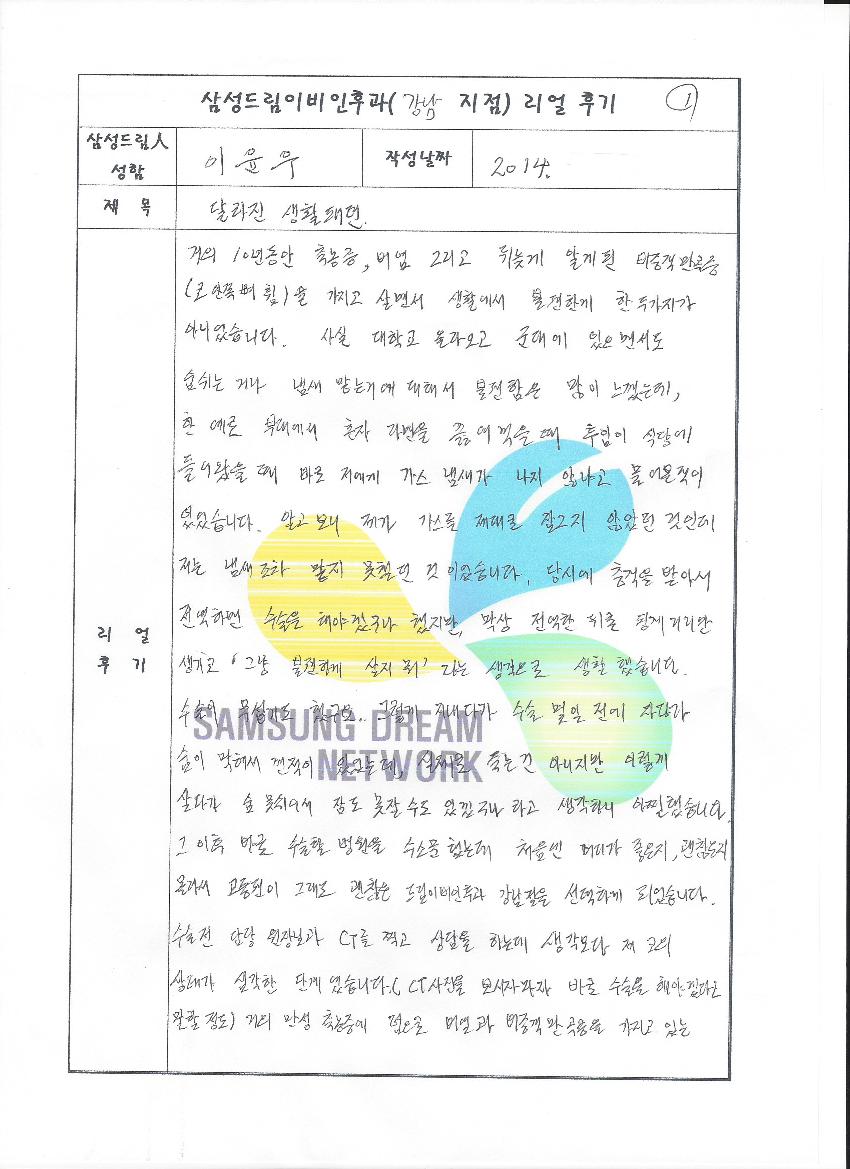 삼성드림이비인후과( 강남 지점) 리얼 후기 ①
삼성드림人 성함 이윤우 작성날짜 2014.
제 목 달라진 생활패턴.
리 얼 후 기
거의 10년동안 축농증, 비염 그리고 뒤늦게 알게된 비중격만곡증
(코 안쪽 뼈 휨)을 가지고 살면서 생활에서 불편한게 한두가지가
아니었습니다. 사실 대학교 올라오고 군대에 있으면서도
숨쉬는 거나 냄새 맡는거에 대해서 불편함은 많이 느꼈는데,
한 예로 부대에서 혼자 라면을 끓여먹을때 후임이 식당에
들어왔을 때 바로 저에게 가스 냄새가 나지 않냐고 물어온적이
있었습니다. 알고 보니 제가 가스를 제대로 잠그지 않았던 것인데
저는 냄새조차 맡지 못했던 것이었습니다. 당시에 충격을 받아서
전역하면 수술을 해야겠구나 했지만, 막상 전역한 뒤로 핑계거리만
생기고 '그냥 불편하게 살지 뭐' 라는 생각으로 생활했습니다.
수술이 무섭기도 했구요.. 그렇게 지내다가 수술 몇일 전에 자다가
숨이 막혀서 깬적이 있었는데, 실제로 죽는건 아니지만 이렇게
살다가 숨 못쉬어서 잠도 못잘 수도 있겠구나 라고 생각하니 아찔했습니다.
그 이후 바로 수술할 병원을 수소문 했는데 처음엔 어디가 좋은지, 괜찮은지
몰라서 고동편이 그래도 괜찮은 드림이비인후과 강남점을 선택하게 되었습니다.
수술전 담당 원장님과 CT를 찍고 상담을 하는데 생각보다 제 코의
상태가 심각한 단계였습니다.( CT사진을 보시자마자 바로 수술을 해야겠다고
말할 정도) 거의 만성 축농증에 덤으로 비염과 비중격만곡증을 가지고 있는
SAMSUNG DREAM
NETWORK